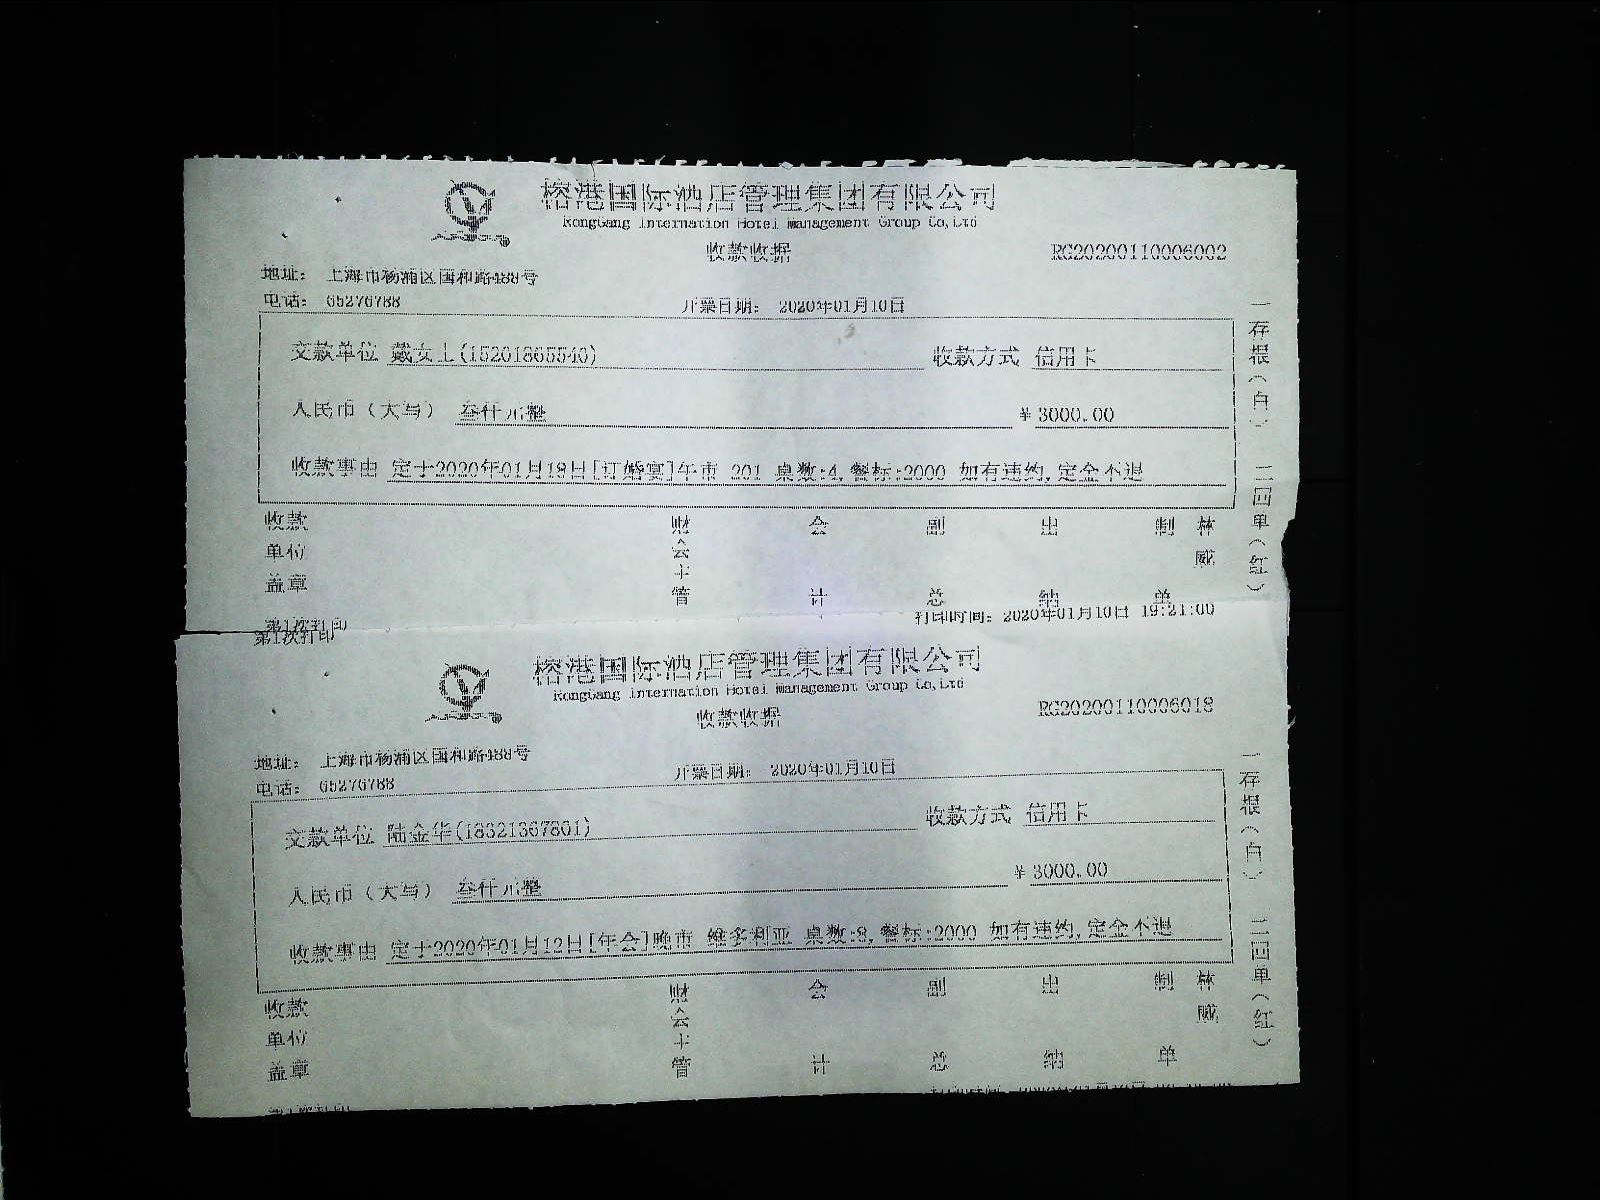 榕港国际酒店管理集团有限公司
RongGang International Hotel Management Group Co,Ltd
收款收据
RG20200110006002
地址： 上海市杨浦区国和路488号
电话： 65276788
开票日期： 2020年01月10日
交款单位 戴女士(15201865540)
收款方式 信用卡
人民币（大写） 叁仟元整
¥ 3000.00
收款事由 定于2020年01月18日[订婚宴]午市 201 桌数:4,餐标:2000 如有违约,定金不退
收款单位盖章
财会主管
会计
副总
出纳
制单
林威
一存根（白） 二回单（红）
第1次打印
打印时间： 2020年01月10日 19:21:00
第1次打印
榕港国际酒店管理集团有限公司
RongGang International Hotel Management Group Co,Ltd
收款收据
RG20200110006018
地址： 上海市杨浦区国和路488号
电话： 65276788
开票日期： 2020年01月10日
交款单位 陆金华(18321367801)
收款方式 信用卡
人民币（大写） 叁仟元整
¥ 3000.00
收款事由 定于2020年01月12日[年会]晚市 维多利亚 桌数:8,餐标:2000 如有违约,定金不退
收款单位盖章
财会主管
会计
副总
出纳
制单
林威
一存根（白） 二回单（红）